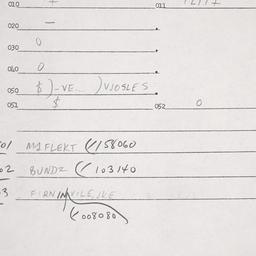 010 + 011
020 —
030 0
040 0
050 $ ) -VE... ) VJOSLES
051 $ 052 0
01 MIFLEKT (/158060
02 BUNDZ (/ 103140
3 FIRNIMVILE, IVE
(/ 008080